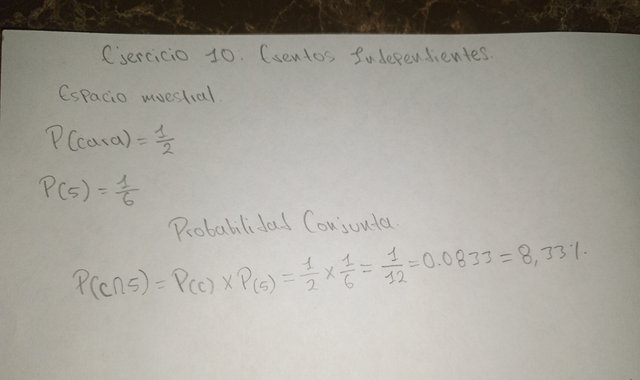 Ejercicio 10. Eventos Independientes.
Espacio muestral.
P(cara) = 1/2
P(5) = 1/6
Probabilidad Conjunta.
P(C∩5) = P(C) x P(5) = 1/2 x 1/6 = 1/12 = 0.0833 = 8,33%.